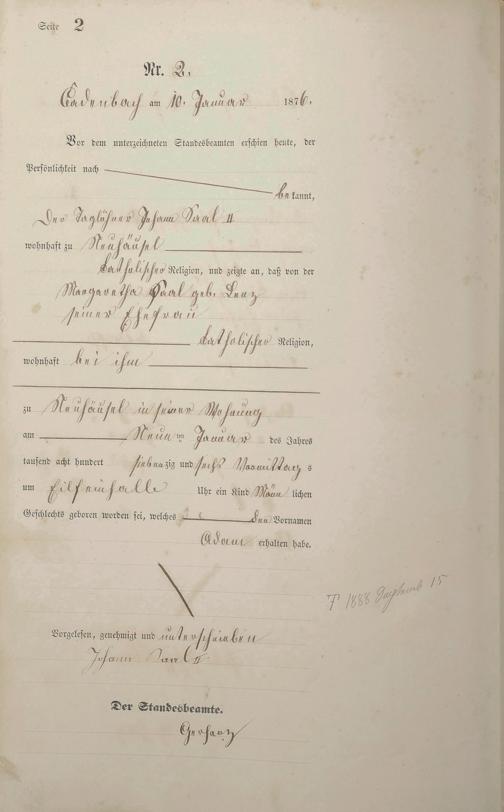 Seite 2
Nr. 2.
Cadenbach am 10. Januar 1876.
Vor dem unterzeichneten Standesbeamten erschien heute, der
Persönlichkeit nach
bekannt,
Der Taglöhner Johann Saal II
wohnhaft zu Neuhäusel
katholischer Religion, und zeigte an, daß von der
Margaretha Saal geb. Lenz
seiner Ehefrau
katholischer Religion,
wohnhaft bei ihm
zu Neuhäusel in seiner Wohnung
am Neun ten Januar des Jahres
tausend acht hundert siebenzig und sechs Vormittag s
um Eilfeinhalb Uhr ein Kind Männ lichen
Geschlechts geboren worden sei, welches den Vornamen
Adam erhalten habe.
Vorgelesen, genehmigt und unterschrieben
Johann Saal II
Der Standesbeamte.
† 1888 15